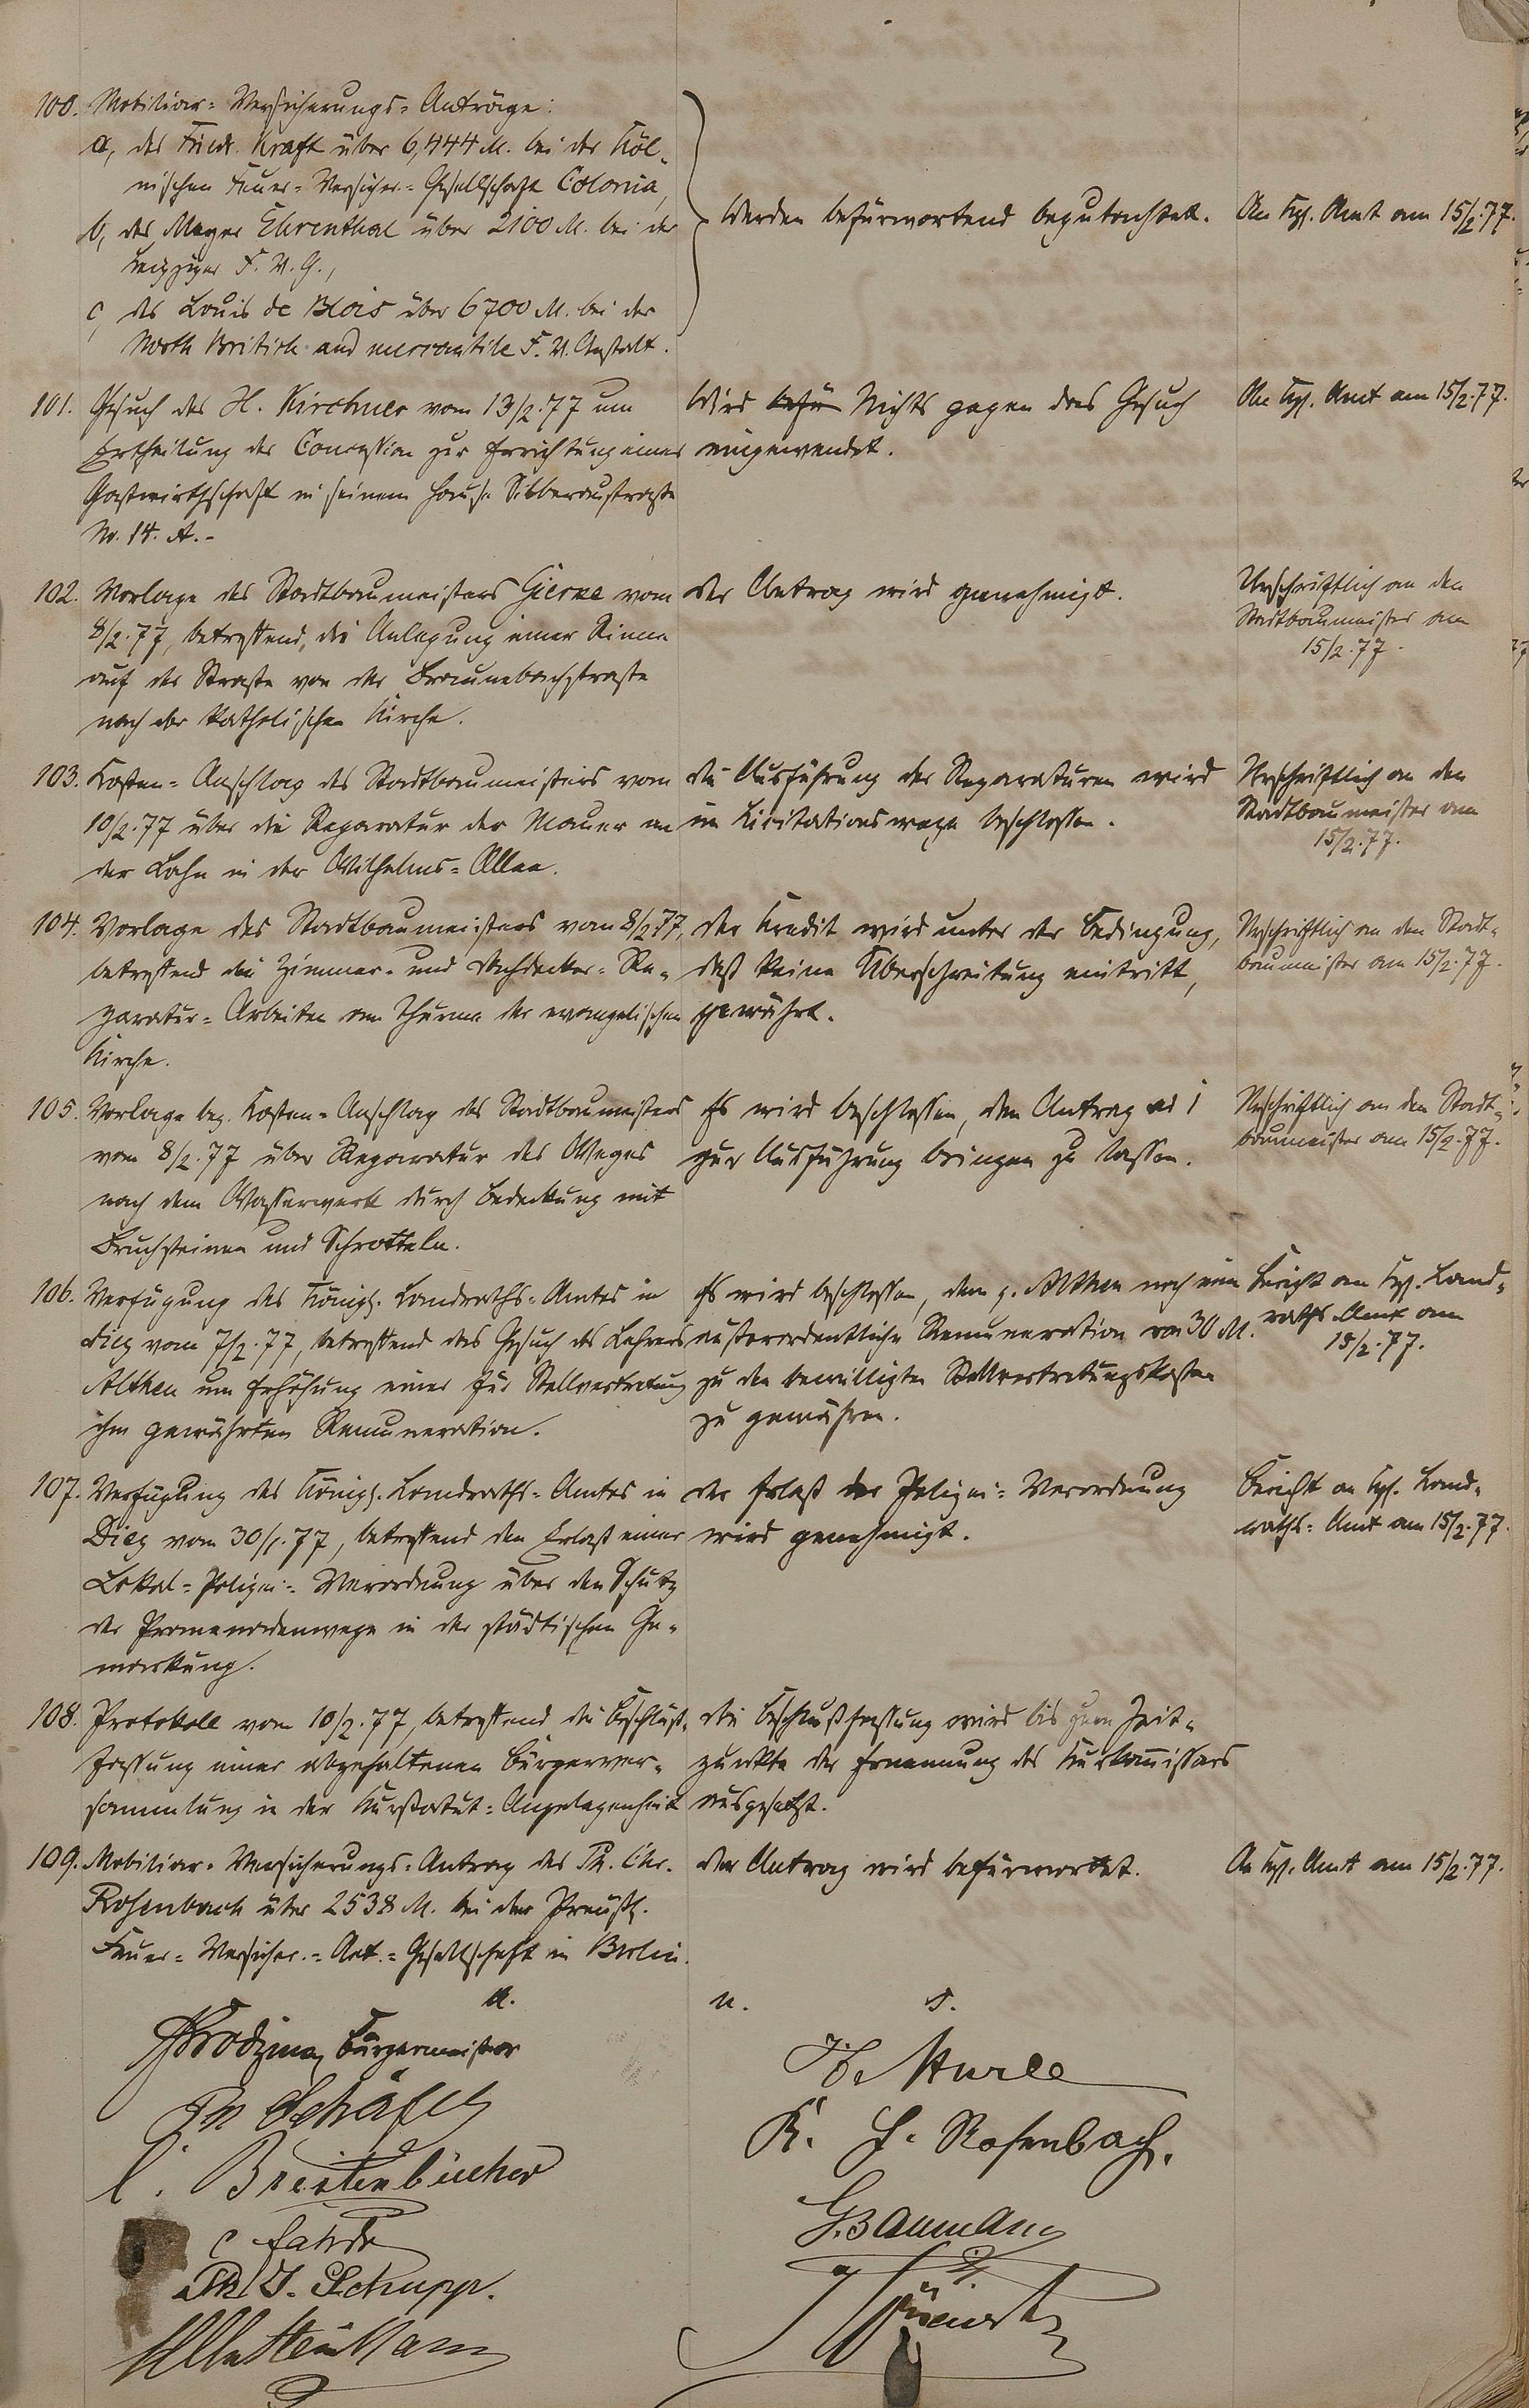 100. Mobiliar-Versicherungs-Anträge:
a, des Friedr. Kraft über 6,444 M. bei der Köl-
nischen Feuer-Versicher.-Gesellschaft Colonia,
b, des Mayer Ehrenthal über 2100 M. bei der
Leipziger F. V. G.,
c, des Louis de Blois über 6700 M. bei der
North British and mercantile F. V. Anstalt.
Werden befürwortend begutachtet.
An Kgl. Amt am 15/2.77.
101. Gesuch des H. Kirchner vom 13/2.77 um
Ertheilung der Concession zur Errichtung einer
Gastwirthschaft in seinem Hause Silberaustraße
No. 14. A.-
Wird befü Nichts gegen das Gesuch
eingewendet.
An Kgl. Amt am 15/2.77.
102. Vorlage des Stadtbaumeisters Gierke vom
8/2.77, betreffend, die Anlegung einer Rinne
auf der Straße von der Braunebachstraße
nach der katholischen Kirche.
Der Antrag wird genehmigt.
Urschriftlich an den
Stadtbaumeister am
15/2.77.
103. Kosten-Anschlag des Stadtbaumeisters vom
10/2.77 über die Reparatur der Mauer an
der Lahn in der Wilhelms-Allee.
Die Ausführung der Reparaturen wird
im Licitationswege beschlossen.
Urschriftlich an den
Stadtbaumeister am
15/2.77.
104. Vorlage des Stadtbaumeisters vom 8/2.77,
betreffend die Zimmer- und Dachdecker-Re-
paratur-Arbeiten am Thurme der evangelischen
Kirche.
Der Kredit wird unter der Bedingung,
daß keine Überschreitung eintritt,
gewährt.
Urschriftlich an den Stadt-
baumeister am 15/2.77.
105. Vorlage bez. Kosten-Anschlag des Stadtbaumeisters
vom 8/2.77 über Reparatur des Weges
nach dem Wasserwerk durch Bedeckung mit
Bruchsteinen und Schrotteln.
Es wird beschlossen, den Antrag ad 1
zur Ausführung bringen zu lassen.
Urschriftlich an den Stadt-
baumeister am 15/2.77.
106. Verfügung des Königl. Landraths-Amtes in
Diez vom 7/2.77, betreffend das Gesuch des Lehrers
Althen um Erhöhung einer für Stellvertretung
ihm gewährten Remuneration.
Es wird beschlossen, dem p. Althen noch eine
außerordentliche Remuneration von 30 M.
zu den bewilligten Stellvertretungskosten
zu gewähren.
Bericht an Kgl. Land-
raths-Amt am
15/2.77.
107. Verfügung des Königl. Landraths-Amtes in
Diez vom 30/1.77, betreffend den Erlaß einer
Lokal-Polizei-Verordnung über den Schutz
der Promenadenwege in der städtischen Ge-
markung.
Der Erlaß der Polizei-Verordnung
wird genehmigt.
Bericht an Kgl. Land-
raths-Amt am 15/2.77.
108. Protokoll vom 10/2.77, betreffend die Beschluß-
fassung einer abgehaltenen Bürgerver-
sammlung in der Kurstatut-Angelegenheit
Die Beschlußfassung wird bis zum Zeit-
punkte der Ernennung des Kurkommissars
ausgesetzt.
109. Mobiliar-Versicherungs-Antrag des Ph. Chr.
Rosenbach über 2538 M. bei der Preuß.
Feuer-Versicher.-Act.-Gesellschaft in Berlin.
Der Antrag wird befürwortet.
An Kgl. Amt am 15/2.77.
u.
Bürgermeister
Ph Schäfer
C. Breitenbücher
Ph J. Schupp.
K. F. Rosenbach.
G. Baumann